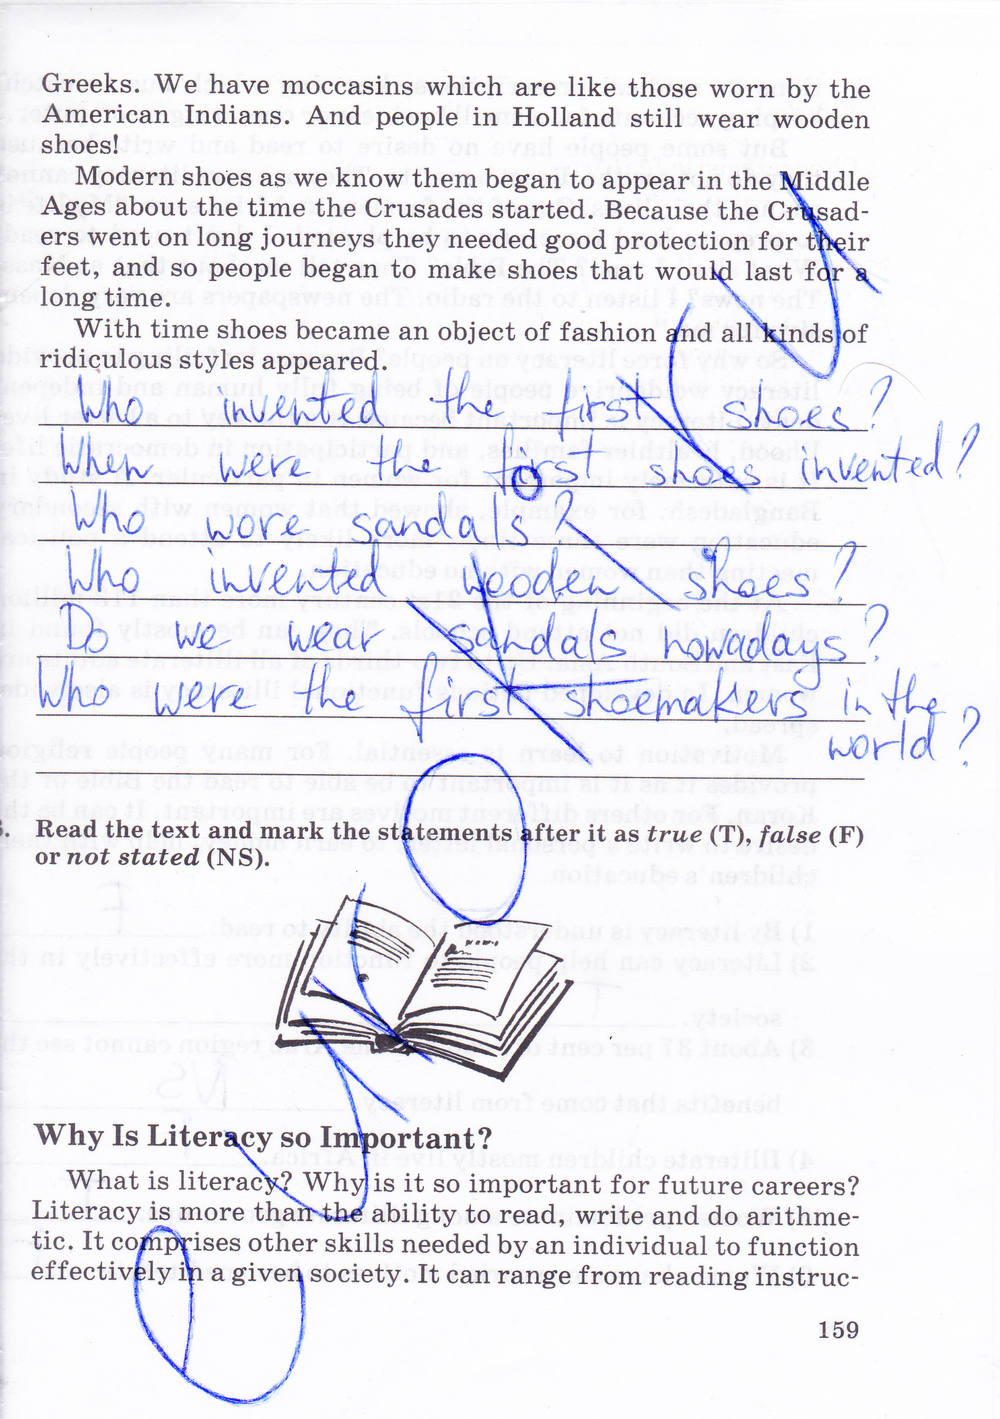 Greeks. We have moccasins which are like those worn by the
American Indians. And people in Holland still wear wooden
shoes!
Modern shoes as we know them began to appear in the Middle
Ages about the time the Crusades started. Because the Crusad-
ers went on long journeys they needed good protection for their
feet, and so people began to make shoes that would last for a
long time.
With time shoes became an object of fashion and all kinds of
ridiculous styles appeared.
Who invented the first shoes?
When were the first shoes invented?
Who wore sandals?
Who invented wooden shoes?
Do we wear sandals nowadays?
Who were the first shoemakers in the
world?
Read the text and mark the statements after it as true (T), false (F)
or not stated (NS).
Why Is Literacy so Important?
What is literacy? Why is it so important for future careers?
Literacy is more than the ability to read, write and do arithme-
tic. It comprises other skills needed by an individual to function
effectively in a given society. It can range from reading instruc-
159